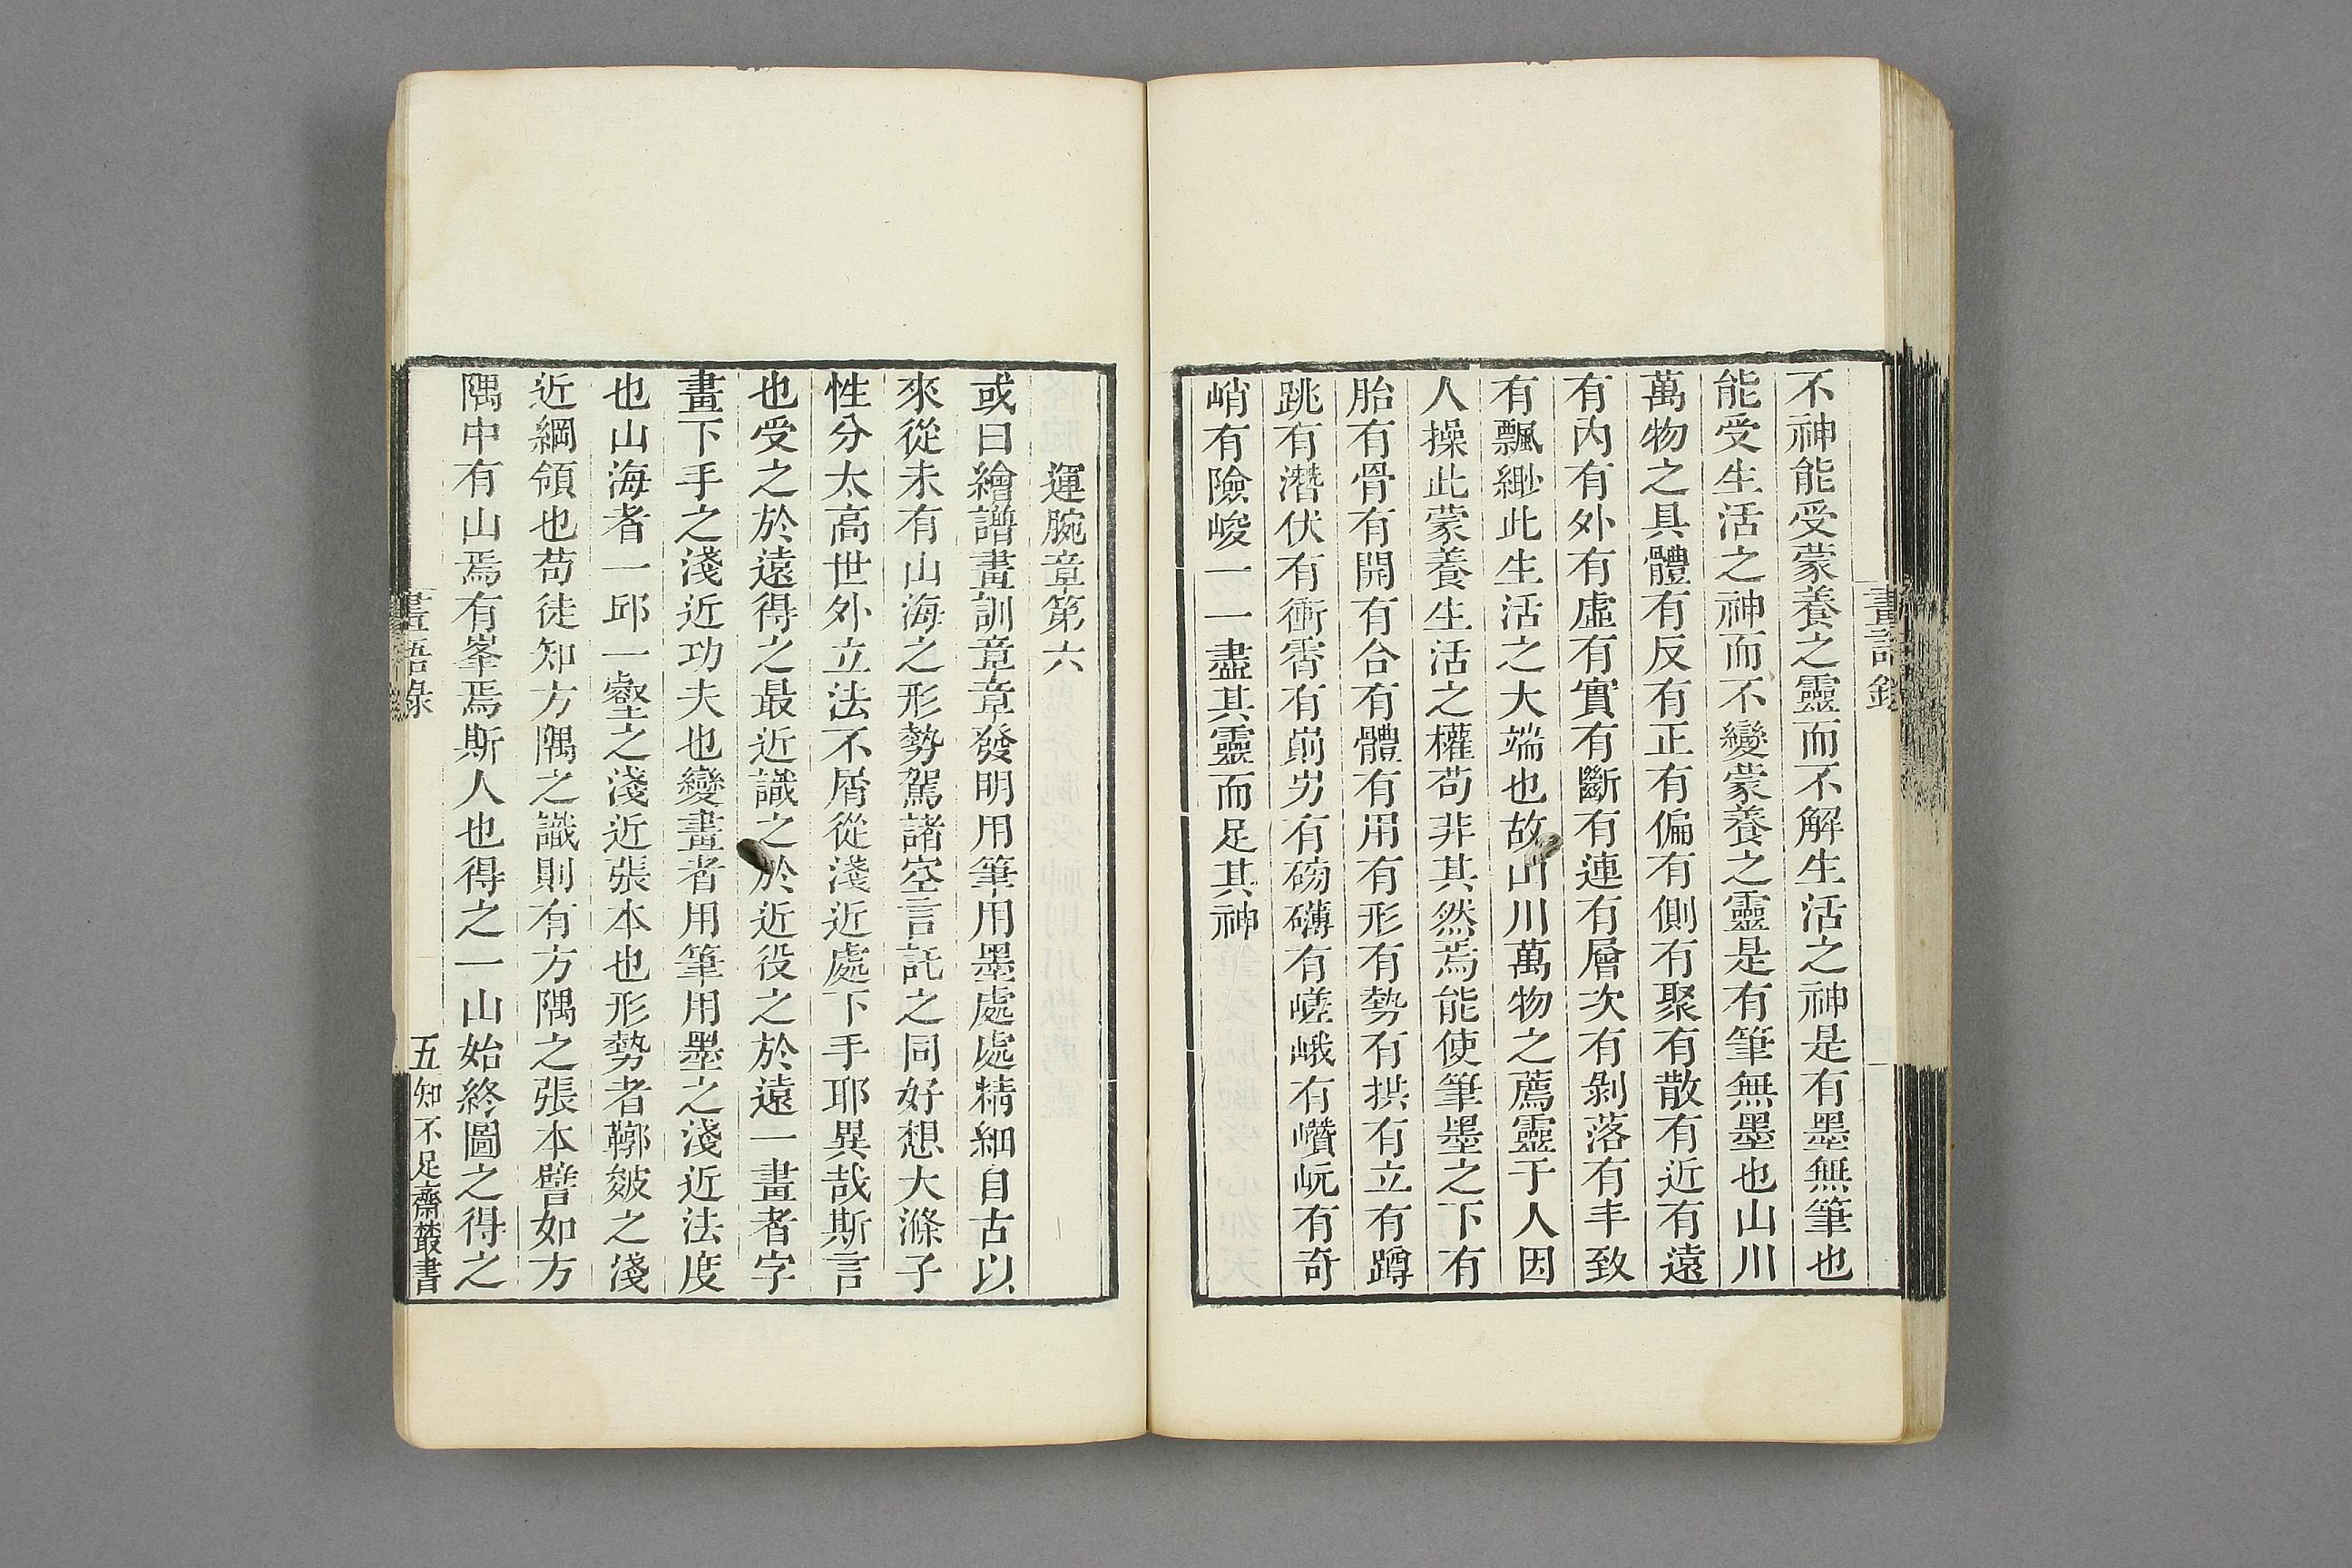 畫語錄
不神能受蒙養之靈而不解生活之神是有墨無筆也
能受生活之神而不變蒙養之靈是有筆無墨也山川
萬物之具體有反有正有偏有側有聚有散有近有遠
有內有外有虛有實有斷有連有層次有剝落有丰致
有飄緲此生活之大端也故山川萬物之薦靈于人因
人操此蒙養生活之權苟非其然焉能使筆墨之下有
胎有骨有開有合有體有用有形有勢有拱有立有蹲
跳有潛伏有衝霄有崱屴有磅礴有嵯峨有巑岏有奇
峭有險峻一一盡其靈而足其神
運腕章第六
或曰繪譜畫訓章章發明用筆用墨處處精細自古以
來從未有山海之形勢駕諸空言託之同好想大滌子
性分太高世外立法不屑從淺近處下手耶異哉斯言
也受之於遠得之最近識之於近役之於遠一畫者字
畫下手之淺近功夫也變畫者用筆用墨之淺近法度
也山海者一邱一壑之淺近張本也形勢者鞹皴之淺
近綱領也苟徒知方隅之識則有方隅之張本譬如方
隅中有山焉有峯焉斯人也得之一山始終圖之得之
畫語錄
五
知不足齋叢書